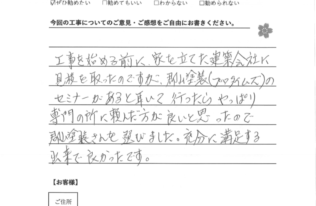 ☑ぜひ勧めたい　□勧めてもいい　□わからない　□勧められない
今回の工事についてのご意見・ご感想をご自由にお書きください。
工事を始める前に、家を立てた建築会社に
見積を取ったのですが、郡山塗装(プロタイムズ)の
セミナーがあると聞いて行ったらやっぱり
専門の所に頼んだ方が良いと思ったので
郡山塗装さんを選びました。充分に満足する
出来で良かったです。
【お客様】
ご住所